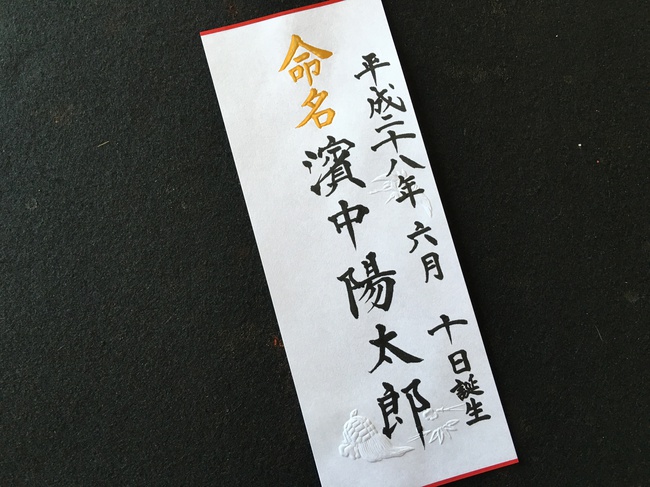 平成二十八年 六月 十日誕生
命名 濱中陽太郎